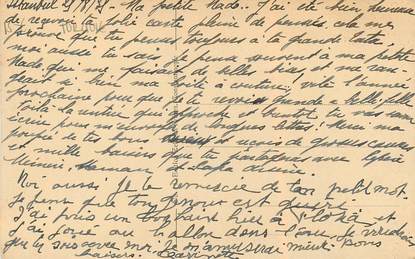 Istanbul 27/8/31. Ma petite Mado. J'ai été bien heureuse
de recevoir ta jolie carte pleine de pensées, cela me
prouve que tu penses toujours à ta grande Tata,
moi aussi tu sais je pense souvent à ma petite
Mado qui me faisait de belles bises, et me ran-
geait si bien ma boîte à couture, vite l'année
prochaine pour que je te revois grande et belle fille
Voilà la rentrée qui approche et bientôt tu vas savoir
écrire pour m'envoyer de longues lettres! Merci ma
poupée de tes bons et reçois de grosses caresses
et mille baisers que tu partageras avec
Mimi, Maman et Papa
Moi aussi je te remercie de ton petit mot.
Je pense que ton genou est guéri.
J'ai pris un bon bain hier à Floria et
j'ai joué au ballon dans l'eau, je voudrais
que tu sois avec moi. Je m'amuserai mieux. Bons
baisers.